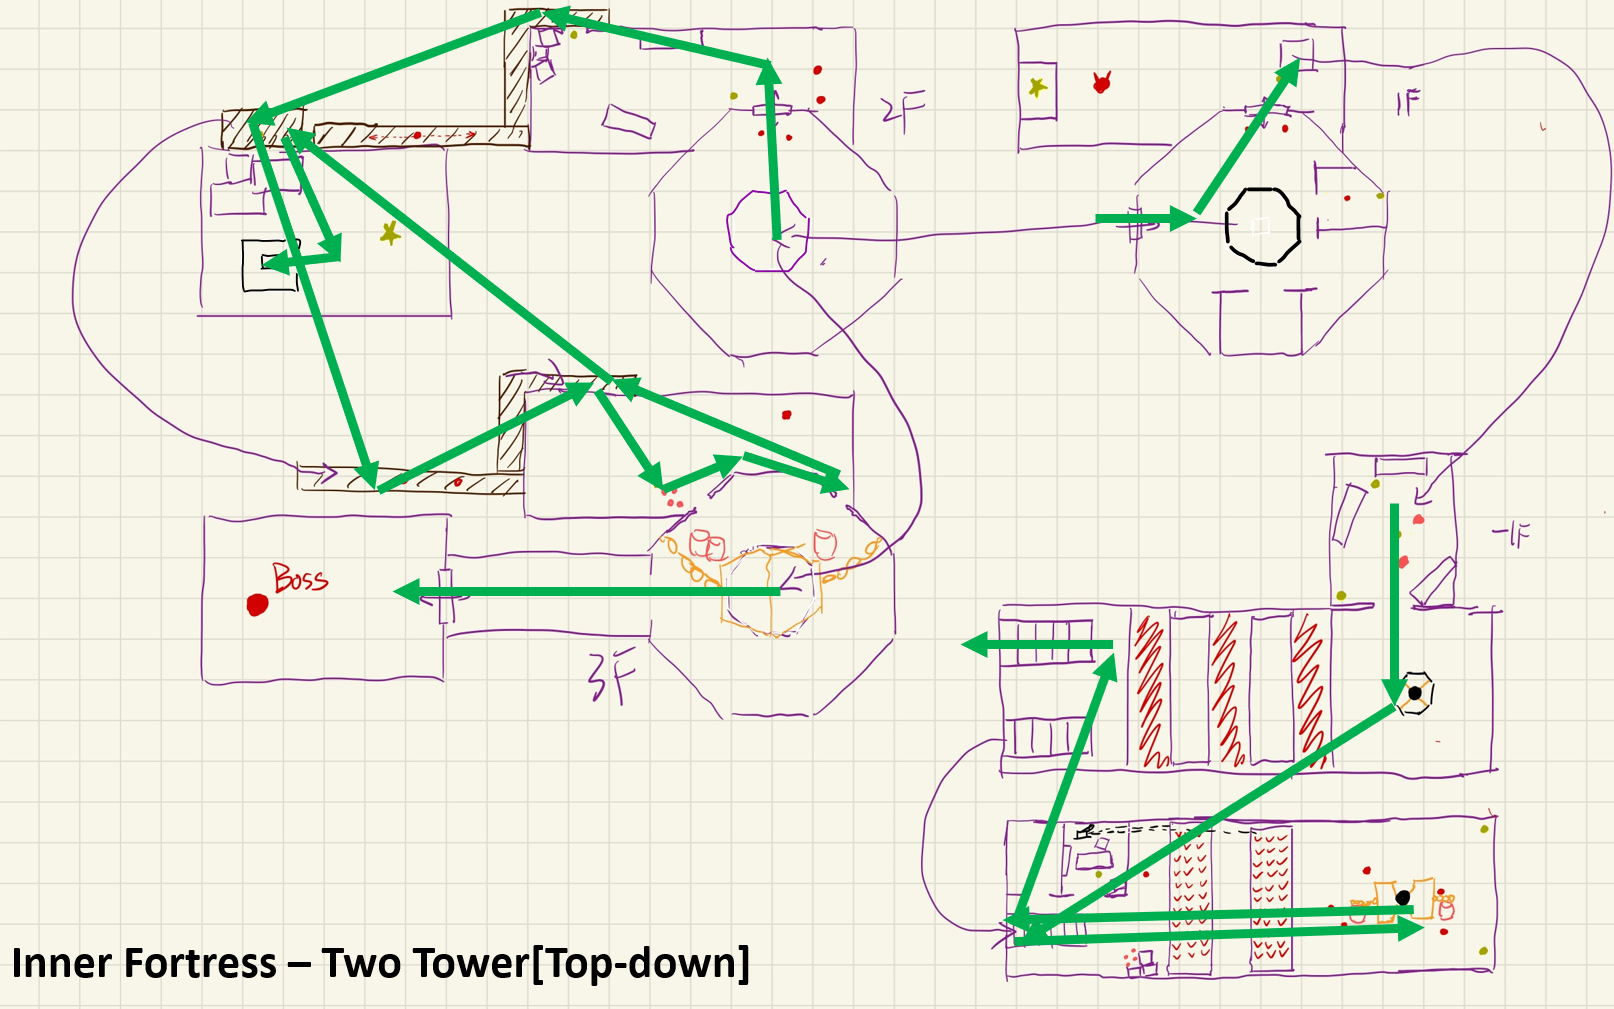 2F
1F
-1F
Boss
3F
Inner Fortress – Two Tower[Top-down]